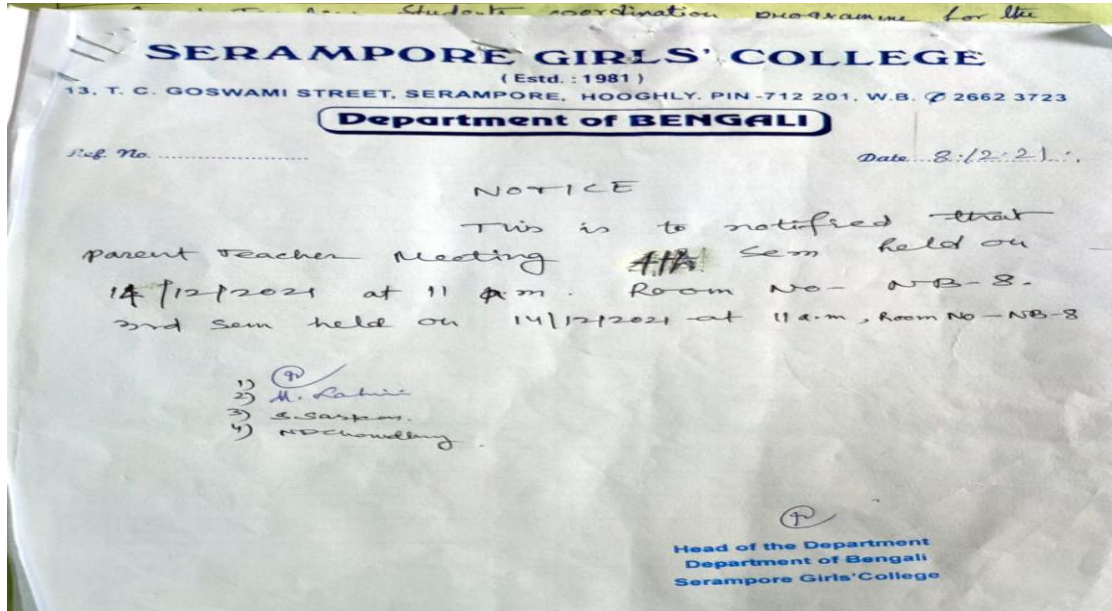 Students coordination programme for the
SERAMPORE GIRLS' COLLEGE
( Estd. : 1981 )
13, T. C. GOSWAMI STREET, SERAMPORE, HOOGHLY. PIN-712 201, W.B. ✆ 2662 3723
Department of BENGALI
Ref. No. ........................ Date 8.12.21
NOTICE
This is to notified that
parent Teacher Meeting sem held on
14/12/2021 at 11 a.m. Room No- NB-8.
3rd sem held on 14/12/2021 at 11 a.m, Room No - NB-8
1)
2) M. Lahiri
3) S. Sarkar.
4) NDChowdhury.
Head of the Department
Department of Bengali
Serampore Girls' College